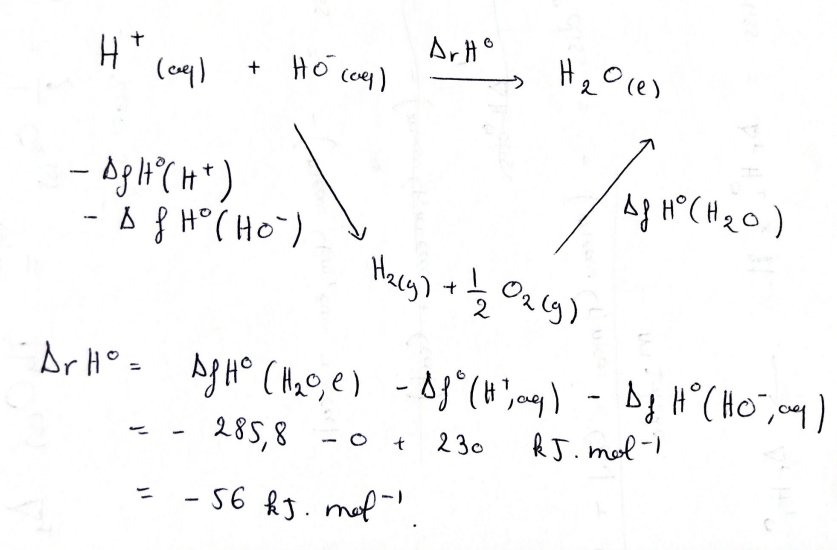 H⁺(aq) + HO⁻(aq) ΔrH° → H₂O(ℓ)
- ΔfH°(H⁺)
- ΔfH°(HO⁻)
ΔfH°(H₂O)
H₂(g) + 1/2 O₂(g)
ΔrH° = ΔfH°(H₂O,ℓ) - Δf°(H⁺,aq) - ΔfH°(HO⁻,aq)
= - 285,8 - 0 + 230 kJ.mol⁻¹
= - 56 kJ.mol⁻¹.